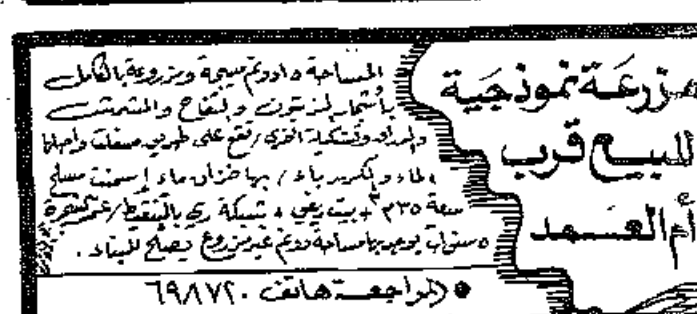 مزرعة نموذجية
للبيع قرب
أم العمد
المساحة ١٥ دونم مسيجة ومزروعة بالكامل
بأشجار الزيتون والتفاح والمشمش
والدراق وتشكيلة أخرى / تقع على طريق
الماء والكهرباء / بها خزان ماء إسمنت مسلح
سعة ٣٥م٣ + بيت ريفي + شبكة ري بالتنقيط / عمر الشجرة
٥ سنوات يوجد بها مساحة دونم غير مزروع يصلح للبناء .
● للمراجعة هاتف ٦٩٨٧٢٠